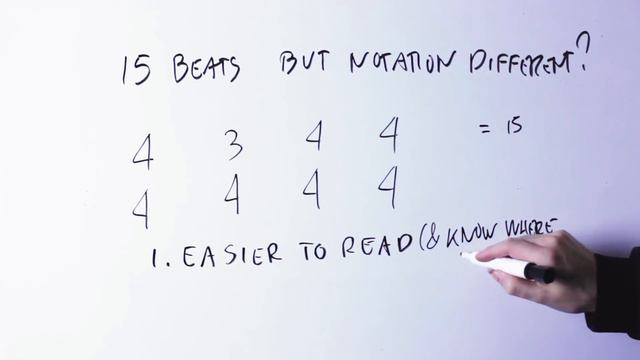 15 BEATS BUT NOTATION DIFFERENT?
4 3 4 4 = 15
4 4 4 4
1. EASIER TO READ (& KNOW WHERE